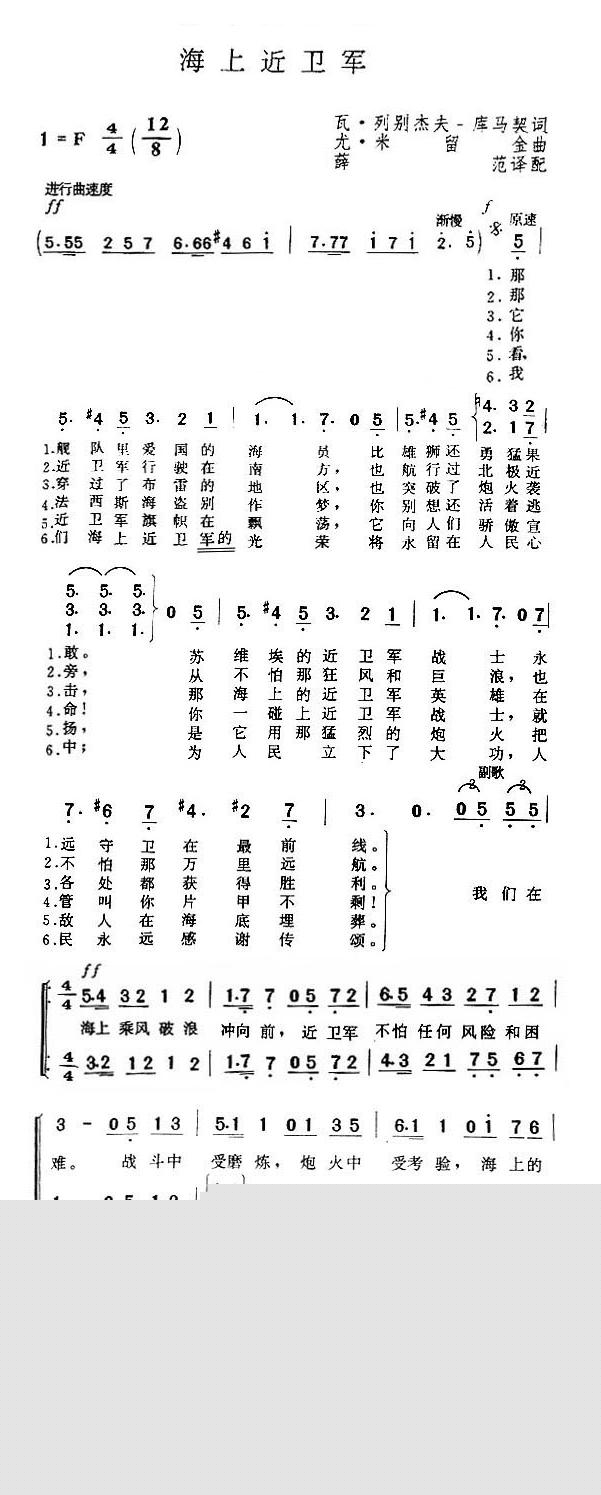 海上近卫军
1=F 4/4 (12/8)
瓦·列别杰夫-库马契词
尤·米留金曲
薛范译配
进行曲速度
ff
渐慢 f 原速
(5.55 257 6.66 #461̇ | 7.77 1̇71̇ 2̇.5̇) 5 |
1.那
2.那
3.它
4.你
5.看,
6.我
5. #4 5 3. 2 1 | 1. 1. 7. 0 5 | 5. #4 5 ♮4. 3 2
2. 1 7
1.舰队里爱国的海员比雄狮还勇猛果
2.近卫军行驶在南方,也航行过北极近
3.穿过了布雷的地区,也突破了炮火袭
4.法西斯海盗别作梦,你别想还活着逃
5.近卫军旗帜在飘荡,它向人们骄傲宣
6.们海上近卫军的光荣将永留在人民心
5. 5. 5.
3. 3. 3.
1. 1. 1.
0 5 | 5. #4 5 3. 2 1 | 1. 1. 7. 0 7 |
1.敢。苏维埃的近卫军战士永
2.旁,从不怕那狂风和巨浪,也
3.击,那海上的近卫军英雄在
4.命!你一碰上近卫军战士,就
5.扬,是它用那猛烈的炮火把
6.中;为人民立下了大功,人
副歌
7. #6 7 #4. #2 7 | 3. 0. 0 5 5 5 |
1.远守卫在最前线。
2.不怕那万里远航。
3.各处都获得胜利。
4.管叫你片甲不剩!
5.敌人在海底埋葬。
6.民永远感谢传颂。
我们在
ff
4/4 5.4 32 1 2 | 1.7 7 05 72 | 6.5 43 27 12 |
海上乘风破浪冲向前,近卫军不怕任何风险和困
4/4 3.2 12 1 2 | 1.7 7 05 72 | 4.3 21 75 67 |
3 - 05 13 | 5.1 1 01 35 | 6.1 1 01̇ 76 |
难。战斗中受磨炼,炮火中受考验,海上的